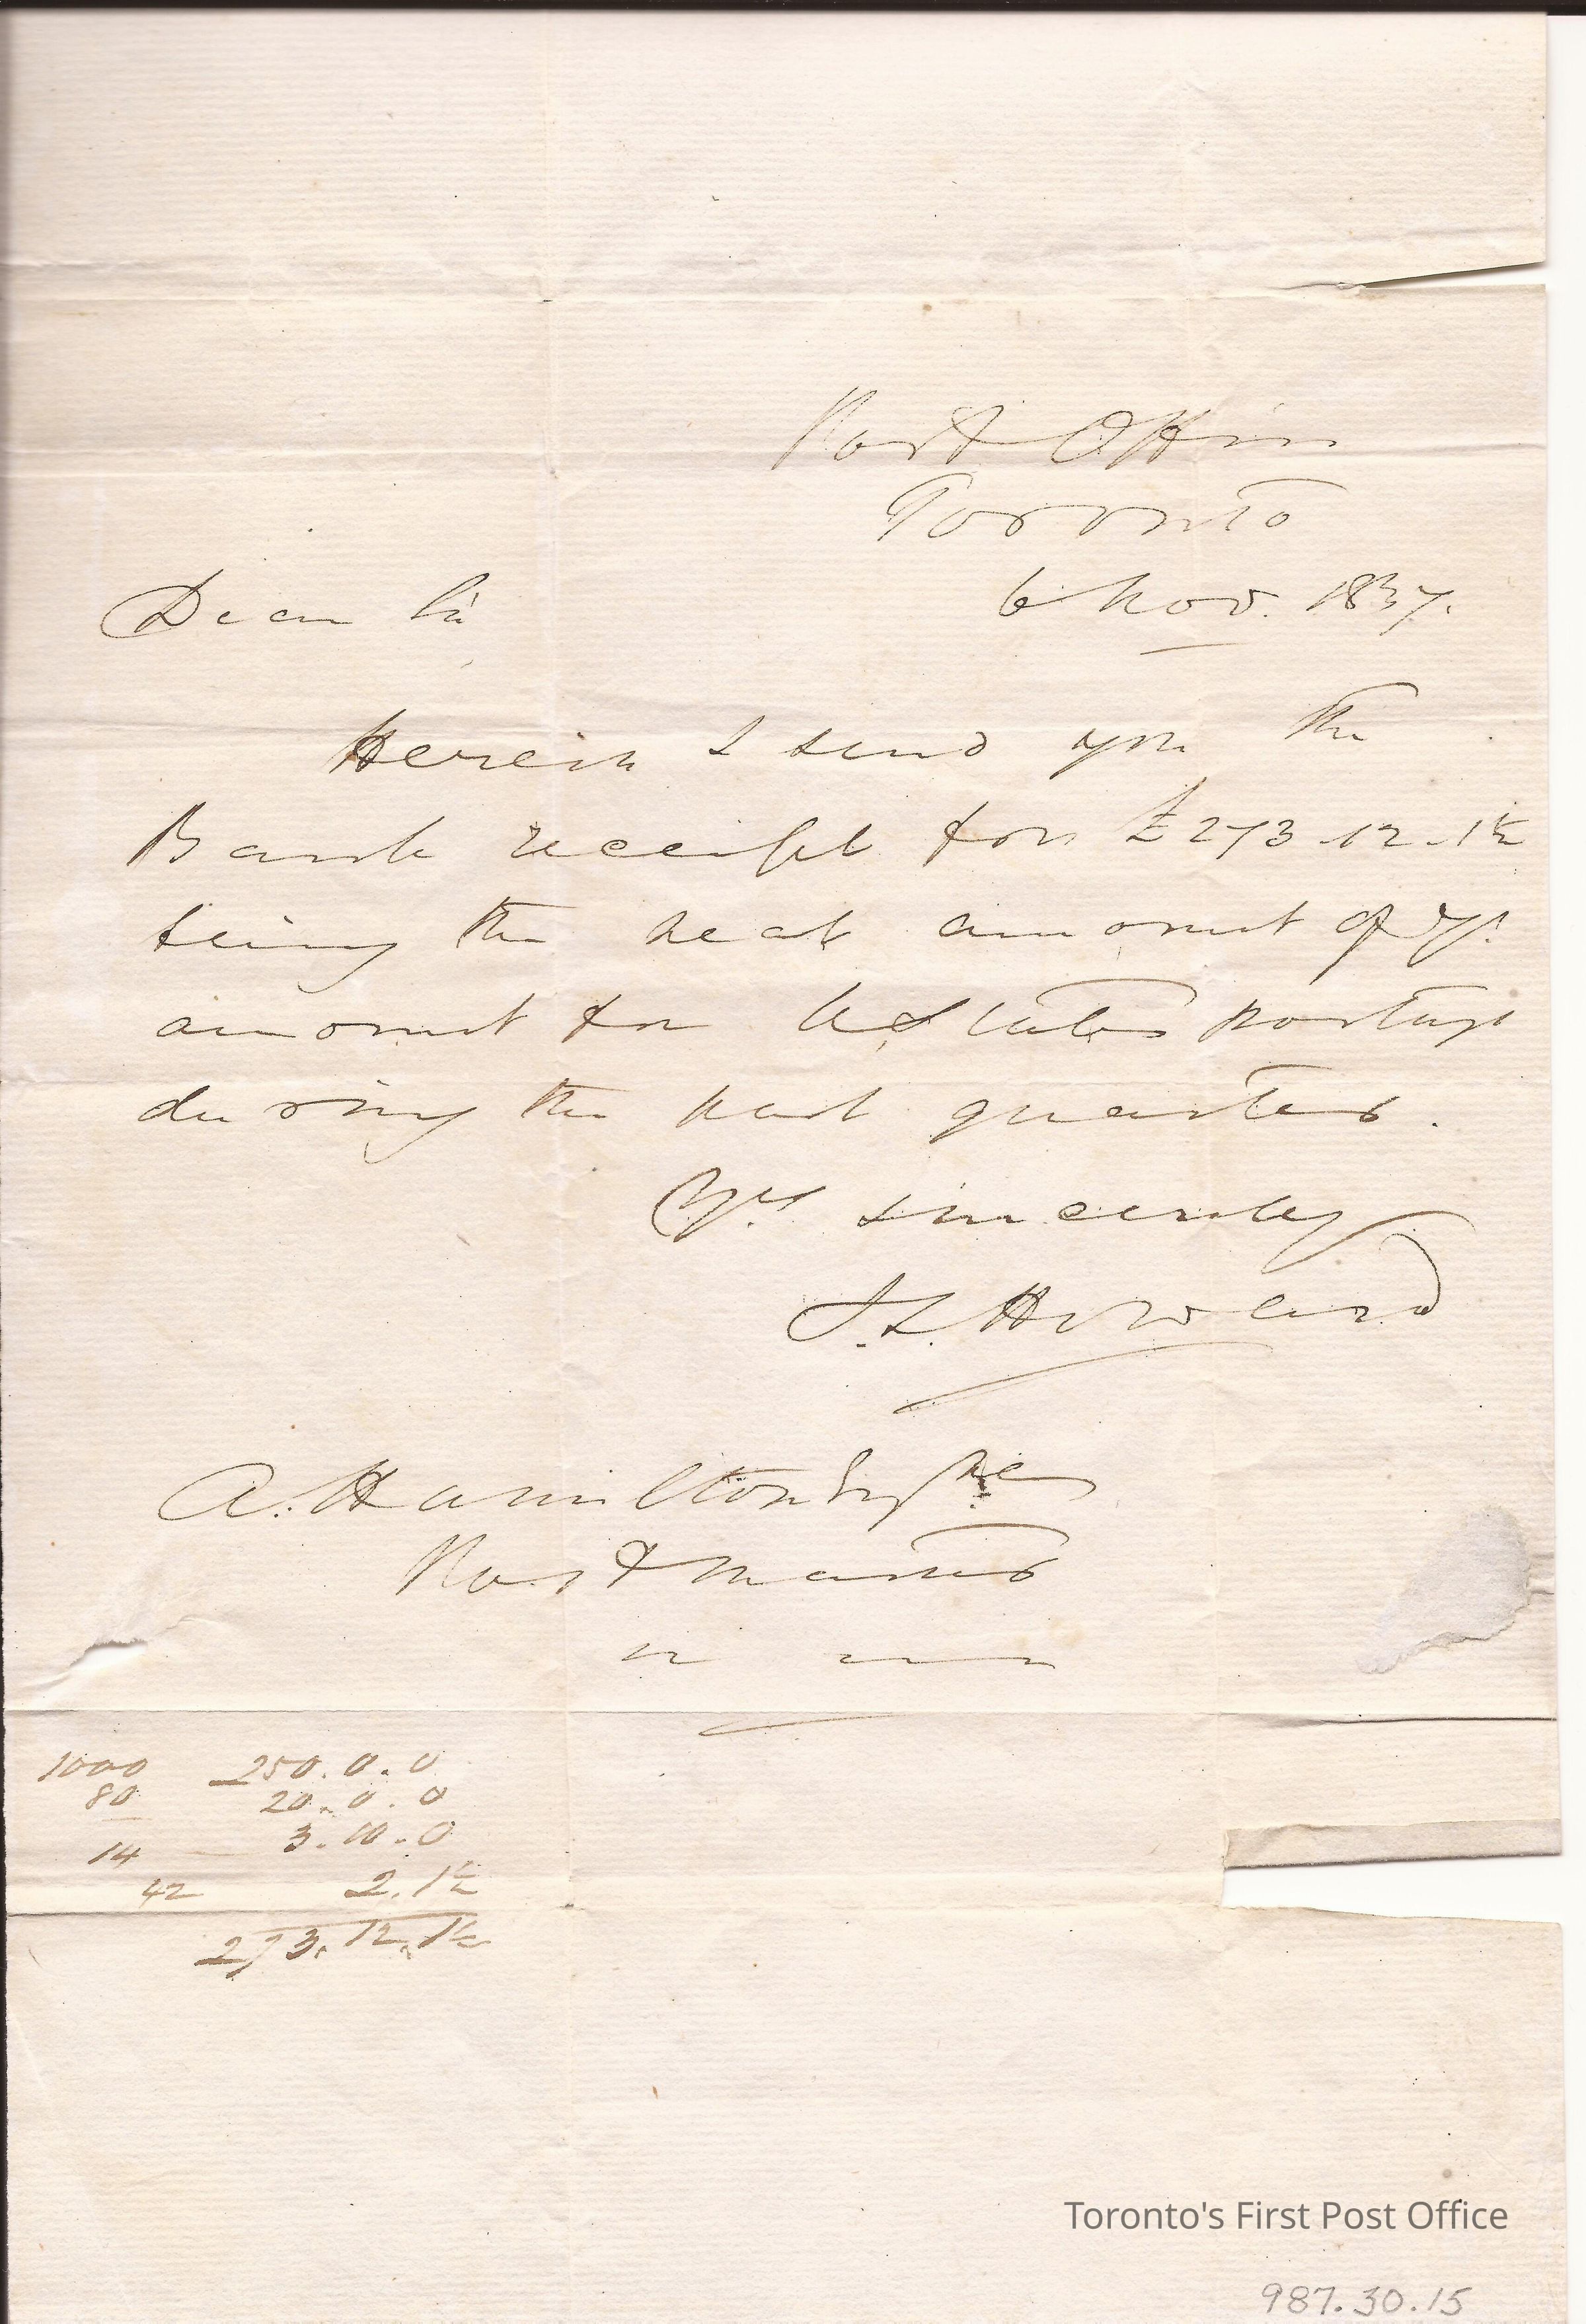 Post Office
Toronto
6 Nov. 1837.
Dear Sir
Herein I send you the
Bank receipt for £273.12.1½
being the neat amount of yr.
amount for U States postage
during the past quarter.
Yrs. sincerely
J. S. Howard
A. Hamilton Esqre
Postmaster
1000 250.0.0
80 20.0.0
14 3.10.0
42 2.1½
273.12.1½
Toronto's First Post Office
987.30.15